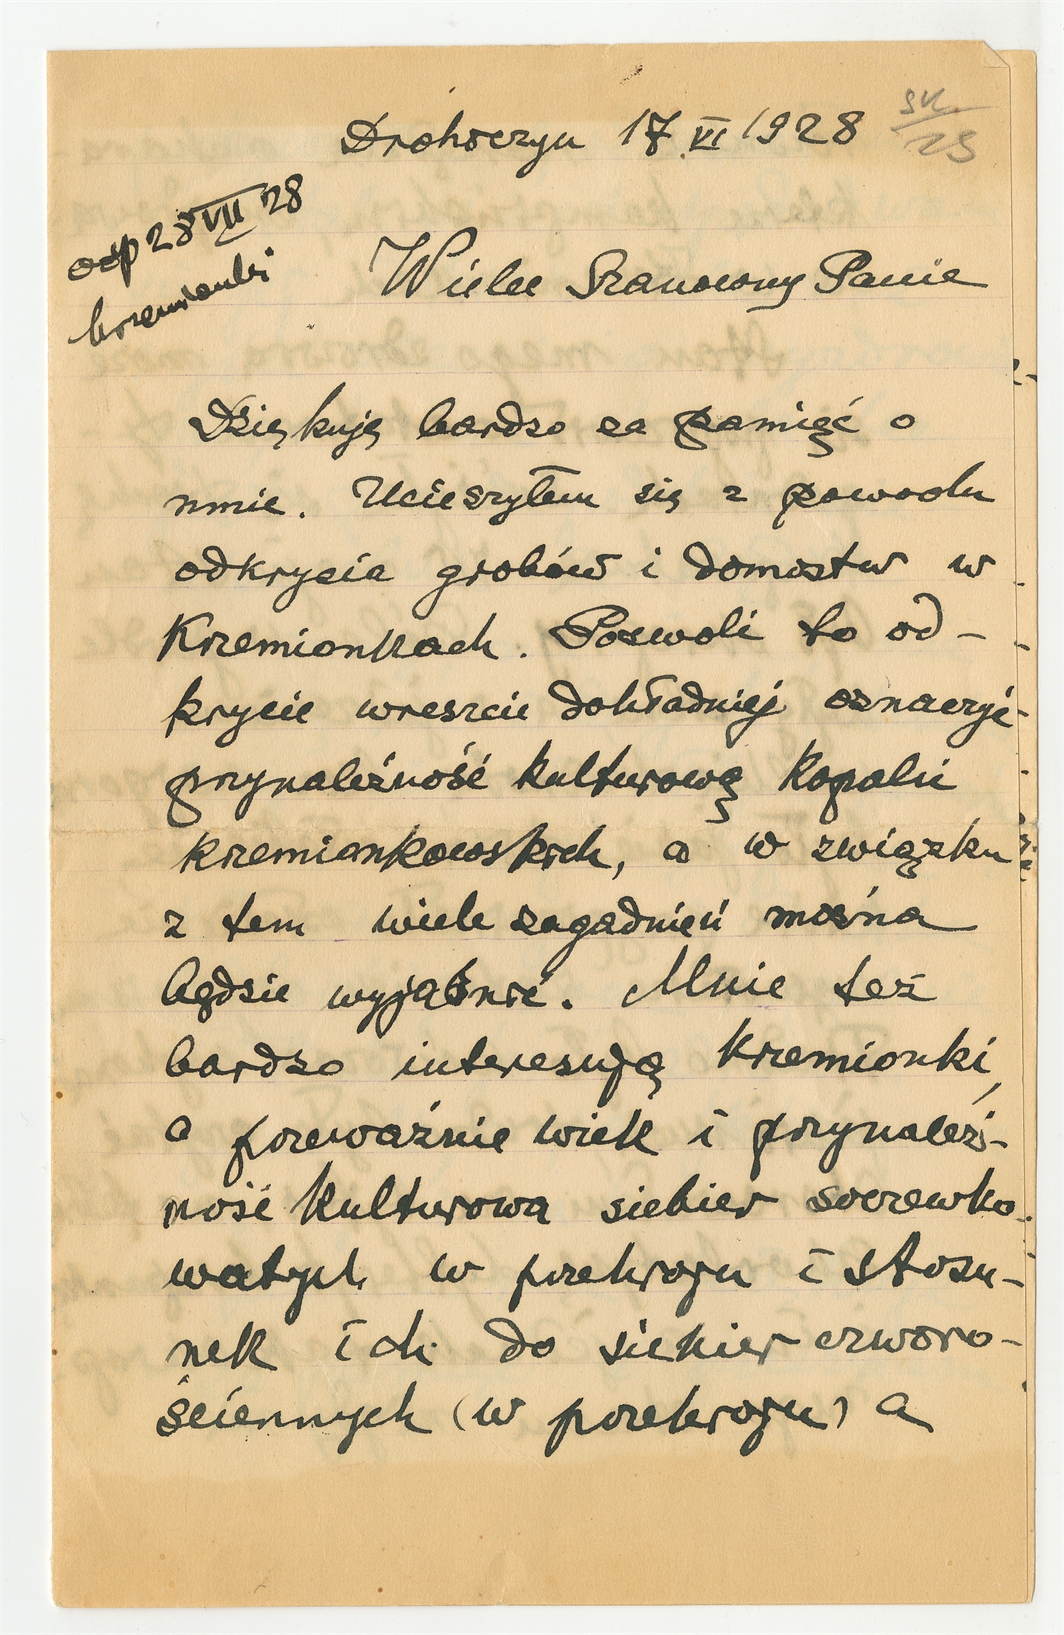 Drohiczyn 17 VI 1928
odp 28 VII 28
krzemionki
Wielce Szanowny Panie
Dziękuję bardzo za pamięć o
mnie. Ucieszyłem się z powodu
odkrycia grobów i domostw w
Krzemionkach. Pozwoli to od-
krycie wreszcie dokładniej oznaczyć
przynależność kulturową kopalń
krzemionkowskich, a w związku
z tem wiele zagadnień można
będzie wyjaśnić. Mnie też
bardzo interesują Krzemionki,
a przeważnie wiek i przynależ-
ność kulturowa siekier soczewko-
watych w przekroju i stosu-
nek ich do siekier czworo-
ściennych (w przekroju) a